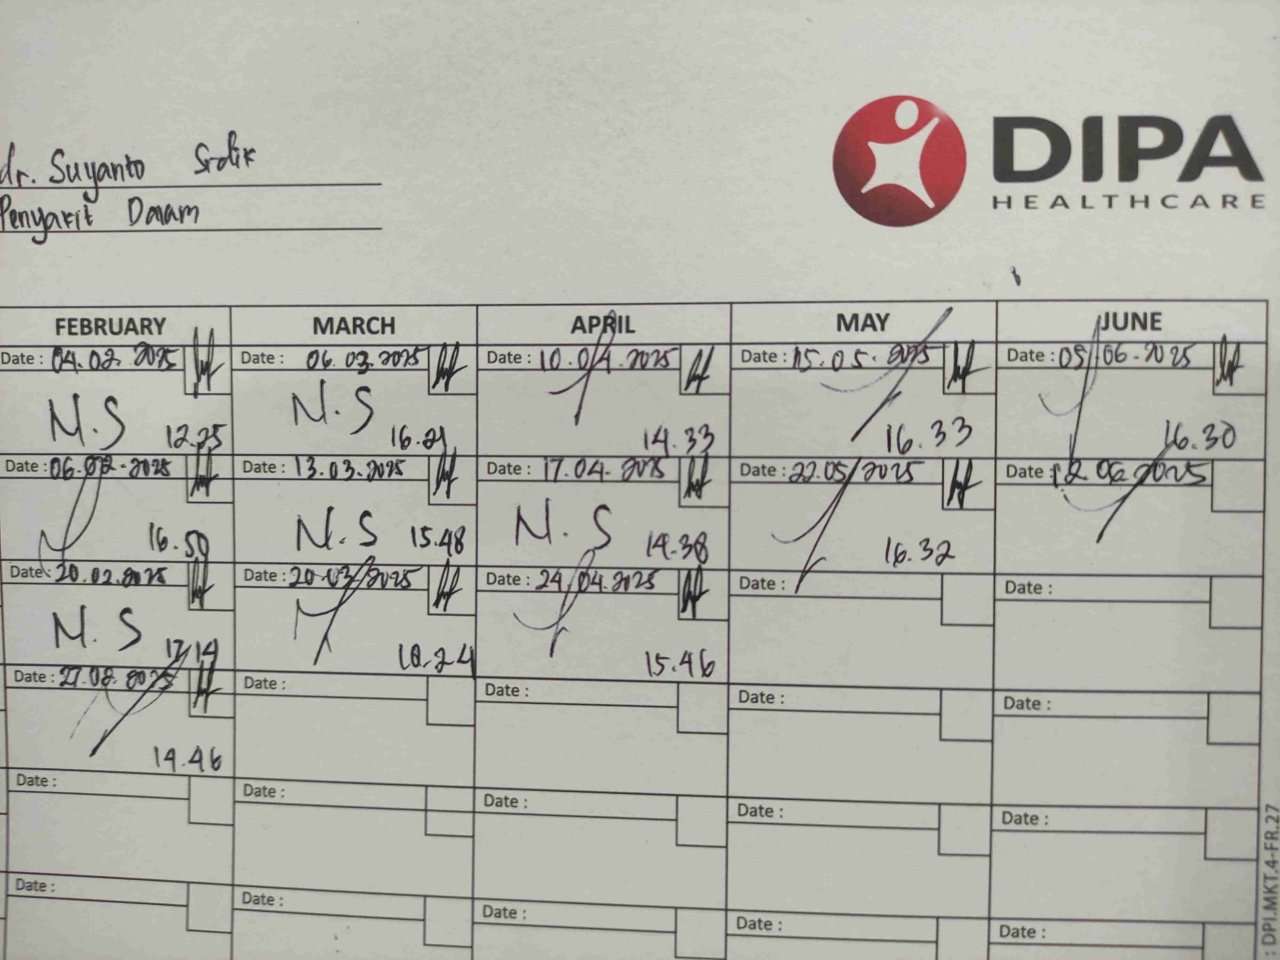 dr. Suyanto Sidik
Penyakit Dalam
DIPA
HEALTHCARE
FEBRUARY MARCH APRIL MAY JUNE
Date : 04.02.2025 Date : 06.03.2025 Date : 10.04.2025 Date : 15.05.2025 Date : 05.06.2025
N.S 12.25 N.S 16.21 14.33 16.33 16.30
Date : 06.02.2025 Date : 13.03.2025 Date : 17.04.2025 Date : 22.05.2025 Date : 12.06.2025
16.50 N.S 15.48 N.S 14.38 16.32
Date : 20.02.2025 Date : 20.03.2025 Date : 24.04.2025 Date : Date :
N.S 17.14 18.24 15.46
Date : 27.02.2025 Date : Date : Date : Date :
14.46
Date : Date : Date : Date : Date :
Date : Date : Date : Date : Date :
: DPI.MKT.4-FR.27